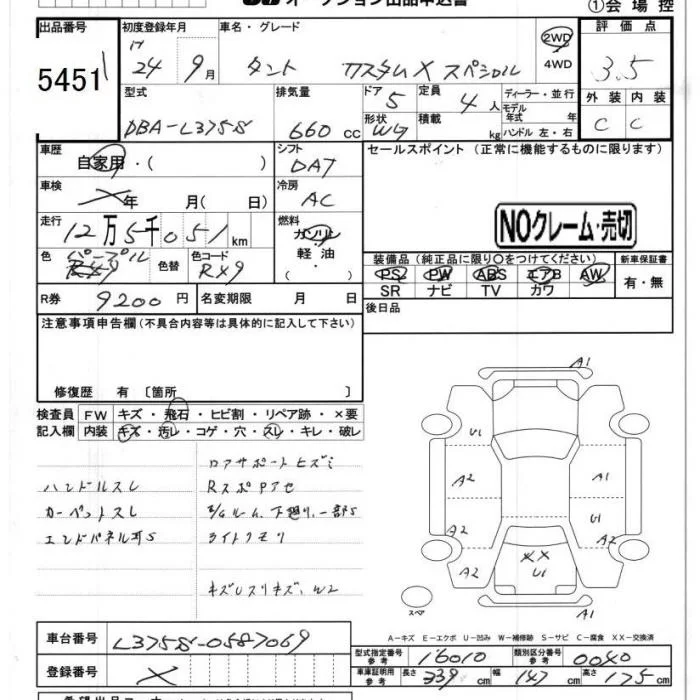 オークション出品申込書
①会場控
出品番号 初度登録年月 車名・グレード 評価点
5451 24 9月 タント カスタムX スペシャル 2WD 4WD 3.5
型式 排気量 ドア 5 定員 4人 ディーラー・並行 外装 内装
モデル年式 年
DBA-L375S 660cc 形状 WG 積載 kg ハンドル 左・右 C C
車歴 自家用・( ) シフト DAT セールスポイント (正常に機能するものに限ります)
車検 年 月(日) 冷房 AC
NOクレーム・売切
走行 12万5千051km 燃料 ガソリン 軽油
色 パープル 色替 色コード RX9 装備品(純正品に限り○をつけてください) 新車保証書
PS PW ABS エアB AW 有・無
SR ナビ TV カワ
R券 9200円 名変期限 月 日 後日品
注意事項申告欄(不具合内容等は具体的に記入して下さい)
修復歴 有〔箇所 〕
検査員 FW キズ・飛石・ヒビ割・リペア跡・×要
記入欄 内装 キズ・汚レ・コゲ・穴・スレ・キレ・破レ
ロアサポートヒズミ
ハンドルスレ
カーペットスレ 下廻り、一部S
エンドパネル
ライトクモリ
W2
A1
U1
A2 A1
U1
A2 A2
XX
U1
A2 A1
スペア
A-キズ E-エクボ U-凹み W-補修跡 S-サビ C-腐食 XX-交換済
車台番号 L375S-0587069
型式指定番号 参考 16010 類別区分番号 参考 0040
登録番号
車庫証明用 参考 長さ 339cm 幅 147cm 高さ 175cm